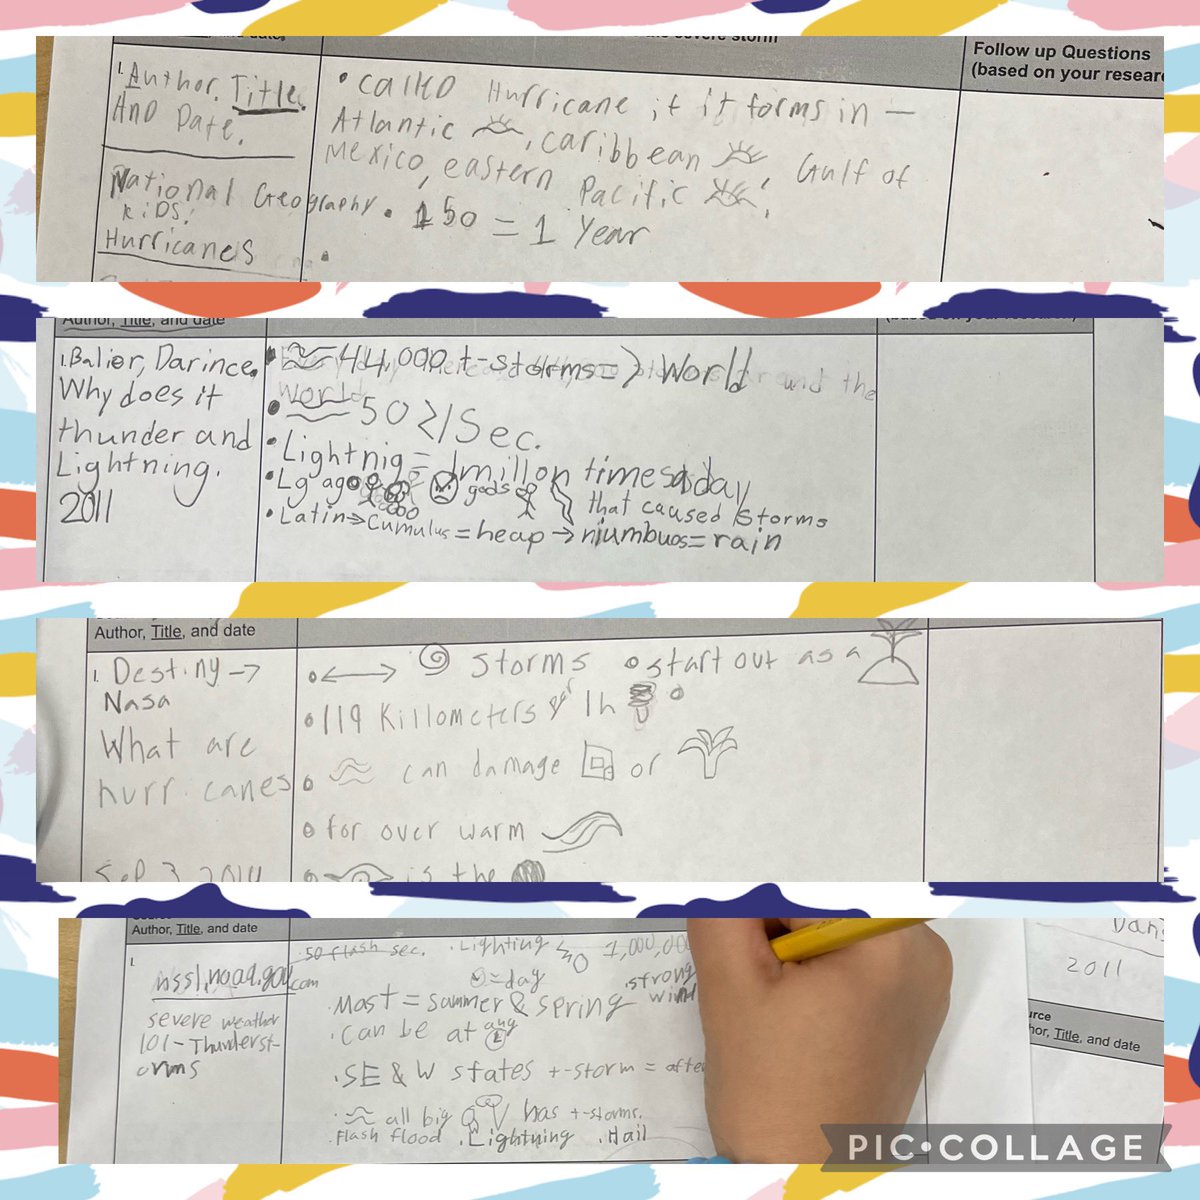 severe storm
Follow up Questions
(based on your resear
1. Author, Title.
And Date.
National Geography
KiDS!
Hurricanes
• called Hurricane if it forms in –
Atlantic , caribbean , Gulf of
Mexico, eastern Pacific .
• 150 = 1 Year
Author, Title, and date
1. Balier, Darince.
Why does it
thunder and
Lightning.
2011
• ≈ 44,000 t-storms => World
• ≈ 50 /Sec.
• Lightnig = 1 millon times a day
• Lg ago gods that caused storms
• Latin → cumulus = heap → niumbuos = rain
Author, Title, and date
1. Destiny →
Nasa
What are
hurricanes
Sep 3 2014
storms • start out as a
• 119 Killometers 1h
• ≈ can damage or
• for over warm
• is the
Author, Title, and date
1.
nssl.noaa.gov
.com
severe weather
101-Thunderst-
orms
50 flash sec. . Lighting 1,000,00
=day . strong wind
. Mast = summer & spring
. can be at any
. SE & W states t-storm = after
. ≈ all big has t-storms.
. Flash flood . Lightning . Hail
2011
Author, Title, and date
PIC•COLLAGE